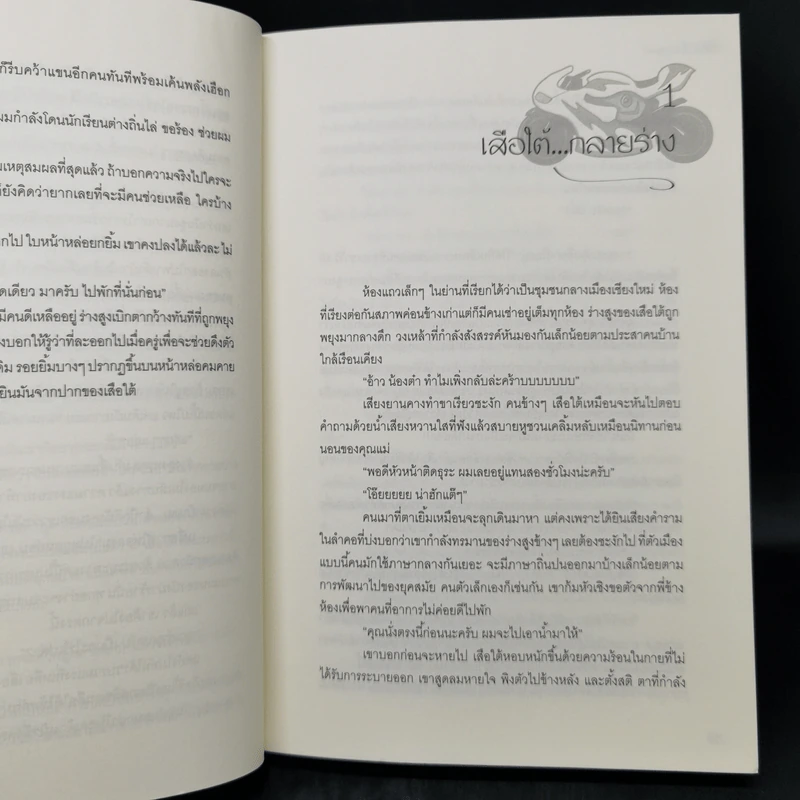 ก็รีบคว้าแขนอีกคนทันทีพร้อมเค้นพลังเฮือก
ผมกำลังโดนนักเรียนต่างถิ่นไล่ ขอร้อง ช่วยผม
มเหตุสมผลที่สุดแล้ว ถ้าบอกความจริงไปใครจะ
ก็ยังคิดว่ายากเลยที่จะมีคนช่วยเหลือ ใครบ้าง
กไป ใบหน้าหล่อยกยิ้ม เขาคงปลงได้แล้วละ ไม่
ดเดียว มาครับ ไปพักที่นั่นก่อน"
มีคนดีเหลืออยู่ ร่างสูงเบิกตากว้างทันทีที่ถูกพยุง
งบอกให้รู้ว่าที่ละออกไปเมื่อครู่เพื่อจะช่วยดึงตัว
ดิม รอยยิ้มบางๆ ปรากฏขึ้นบนหน้าหล่อคมคาย
ยินมันจากปากของเสือใต้
1
เสือใต้...กลายร่าง
ห้องแถวเล็กๆ ในย่านที่เรียกได้ว่าเป็นชุมชนกลางเมืองเชียงใหม่ ห้อง
ที่เรียงต่อกันสภาพค่อนข้างเก่าแต่ก็มีคนเช่าอยู่เต็มทุกห้อง ร่างสูงของเสือใต้ถูก
พยุงมากลางดึก วงเหล้าที่กำลังสังสรรค์หันมองกันเล็กน้อยตามประสาคนบ้าน
ใกล้เรือนเคียง
"อ้าว น้องตำ ทำไมเพิ่งกลับล่ะคร้าบบบบบบ"
เสียงยานคางทำขาเรียวชะงัก คนข้างๆ เสือใต้เหมือนจะหันไปตอบ
คำถามด้วยน้ำเสียงหวานใสที่ฟังแล้วสบายหูชวนเคลิ้มหลับเหมือนนิทานก่อน
นอนของคุณแม่
"พอดีหัวหน้าติดธุระ ผมเลยอยู่แทนสองชั่วโมงน่ะครับ"
"โอ๊ยยยยย น่าฮักแต๊ๆ"
คนเมาที่ตาเยิ้มเหมือนจะลุกเดินมาหา แต่คงเพราะได้ยินเสียงคำราม
ในลำคอที่บ่งบอกว่าเขากำลังทรมานของร่างสูงข้างๆ เลยต้องชะงักไป ที่ตัวเมือง
แบบนี้คนมักใช้ภาษากลางกันเยอะ จะมีภาษาถิ่นปนออกมาบ้างเล็กน้อยตาม
การพัฒนาไปของยุคสมัย คนตัวเล็กเองก็เช่นกัน เขาก้มหัวเชิงขอตัวจากพี่ข้าง
ห้องเพื่อพาคนที่อาการไม่ค่อยดีไปพัก
"คุณนั่งตรงนี้ก่อนนะครับ ผมจะไปเอาน้ำมาให้"
เขาบอกก่อนจะหายไป เสือใต้หอบหนักขึ้นด้วยความร้อนในกายที่ไม่
ได้รับการระบายออก เขาสูดลมหายใจ พิงตัวไปข้างหลัง และตั้งสติ ตาที่กำลัง